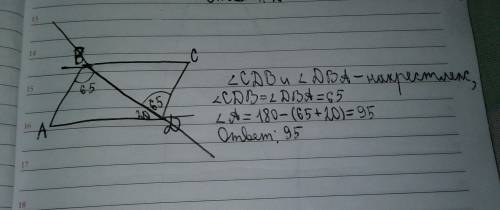 13
14
B
C
∠CDB и ∠DBA - накрестлеж,
65
65
15
∠CDB = ∠DBA = 65
A
20
D
16
∠A = 180 - (65 + 20) = 95
Ответ: 95
17
18